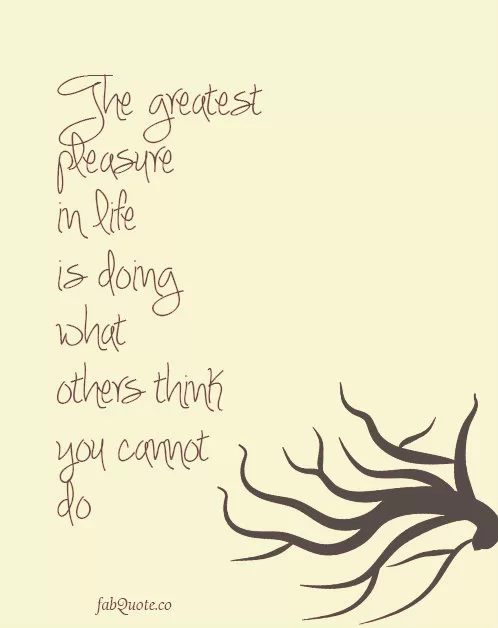 The greatest
pleasure
in life
is doing
what
others think
you cannot
do
fabQuote.co